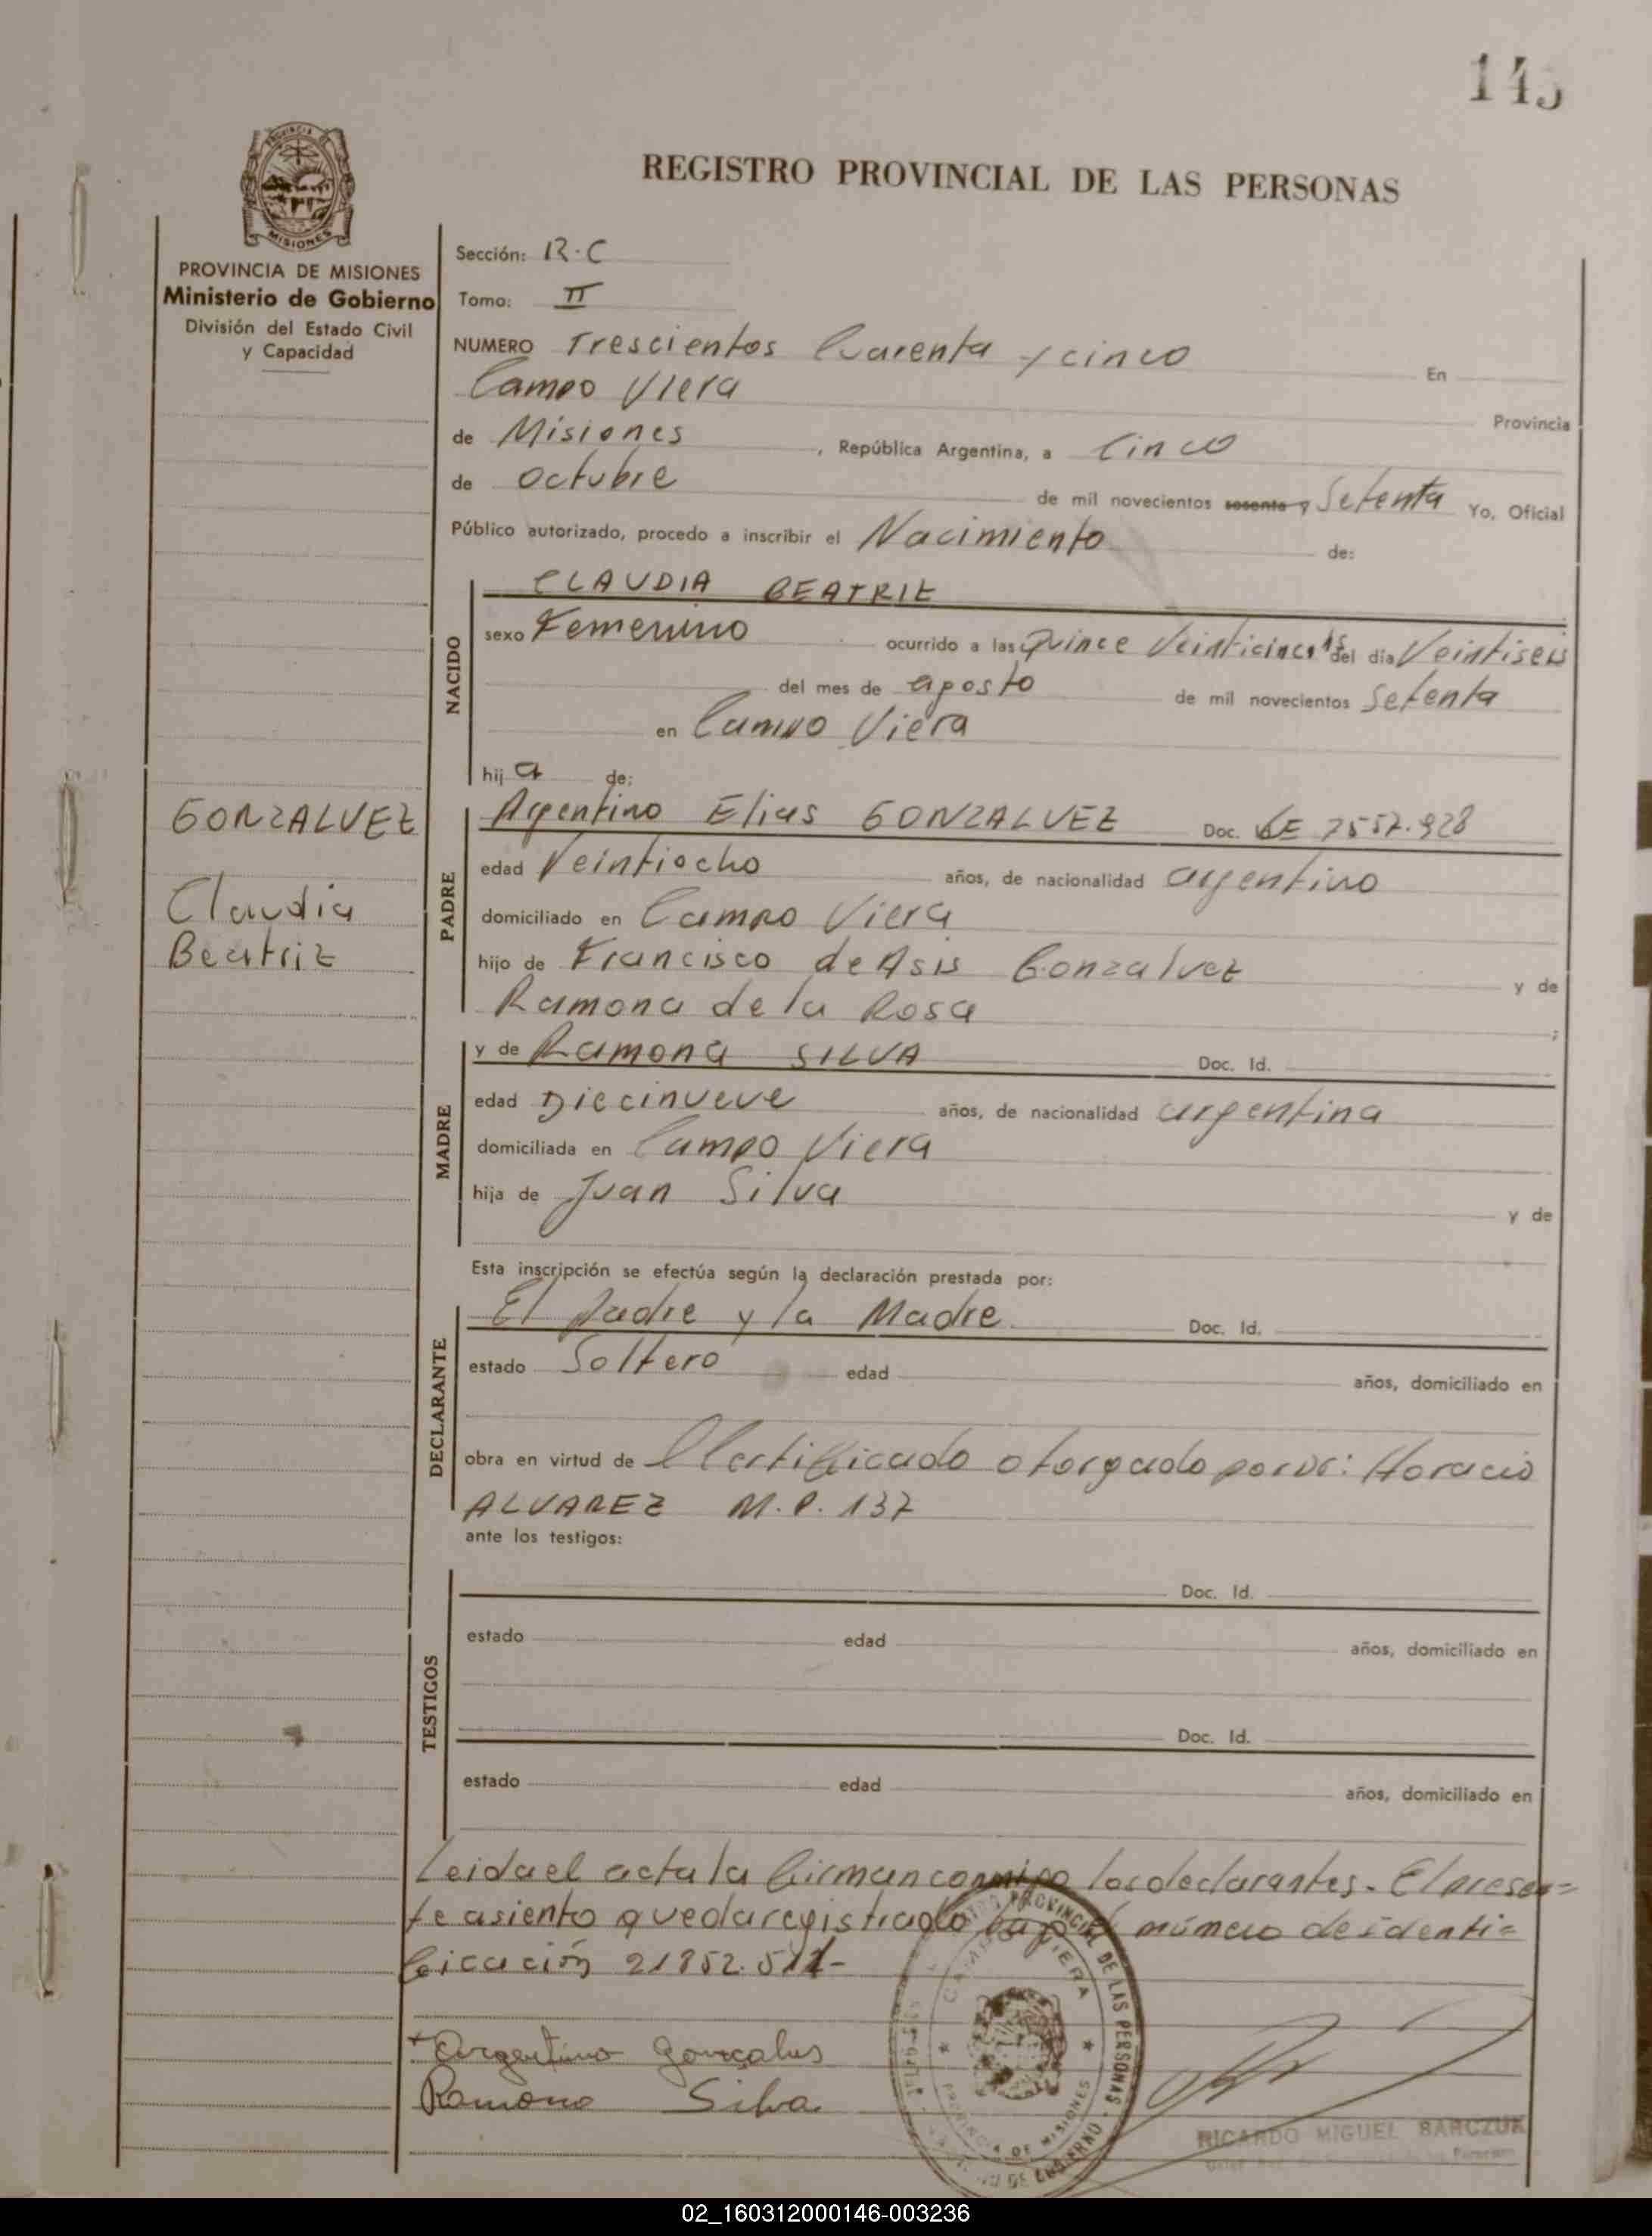 145
REGISTRO PROVINCIAL DE LAS PERSONAS
MISIONES
PROVINCIA DE MISIONES
Ministerio de Gobierno
División del Estado Civil
y Capacidad
Sección: R.C
Tomo: II
NUMERO Trescientos Cuarenta y cinco En
Campo Viera Provincia
de Misiones, República Argentina, a Cinco
de Octubre de mil novecientos sesenta y Setenta Yo, Oficial
Público autorizado, procedo a inscribir el Nacimiento de:
NACIDO
CLAUDIA BEATRIZ
sexo Femenino ocurrido a las Quince Veinticinco hs del dia Veintiseis
del mes de agosto de mil novecientos Setenta
en Campo Viera
hija de:
GONZALVEZ
Claudia
Beatriz
PADRE
Argentino Elias GONZALVEZ Doc. LE 7557.928
edad Veintiocho años, de nacionalidad argentino
domiciliado en Campo Viera
hijo de Francisco de Asis Gonzalvez y de
Ramona de la Rosa ;
MADRE
y de Ramona SILVA Doc. Id.
edad Diecinueve años, de nacionalidad argentina
domiciliada en Campo Viera
hija de Juan Silva y de
Esta inscripción se efectúa según la declaración prestada por:
DECLARANTE
El Padre y la Madre Doc. Id.
estado Soltero edad años, domiciliado en
obra en virtud de Certificado otorgado por Dr: Horacio
ALVAREZ M.P. 137
ante los testigos:
TESTIGOS
Doc. Id.
estado edad años, domiciliado en
Doc. Id.
estado edad años, domiciliado en
Leida el acta la firman conmigo los declarantes. El presen=
te asiento queda registrado bajo el número de identi=
ficación 21852.511-
Argentino Gonçalves
Ramona Silva
PROVINCIAL DE LAS PERSONAS
VIERA
PROVINCIA DE MISIONES
RICARDO MIGUEL BARCZUK
02_160312000146-003236